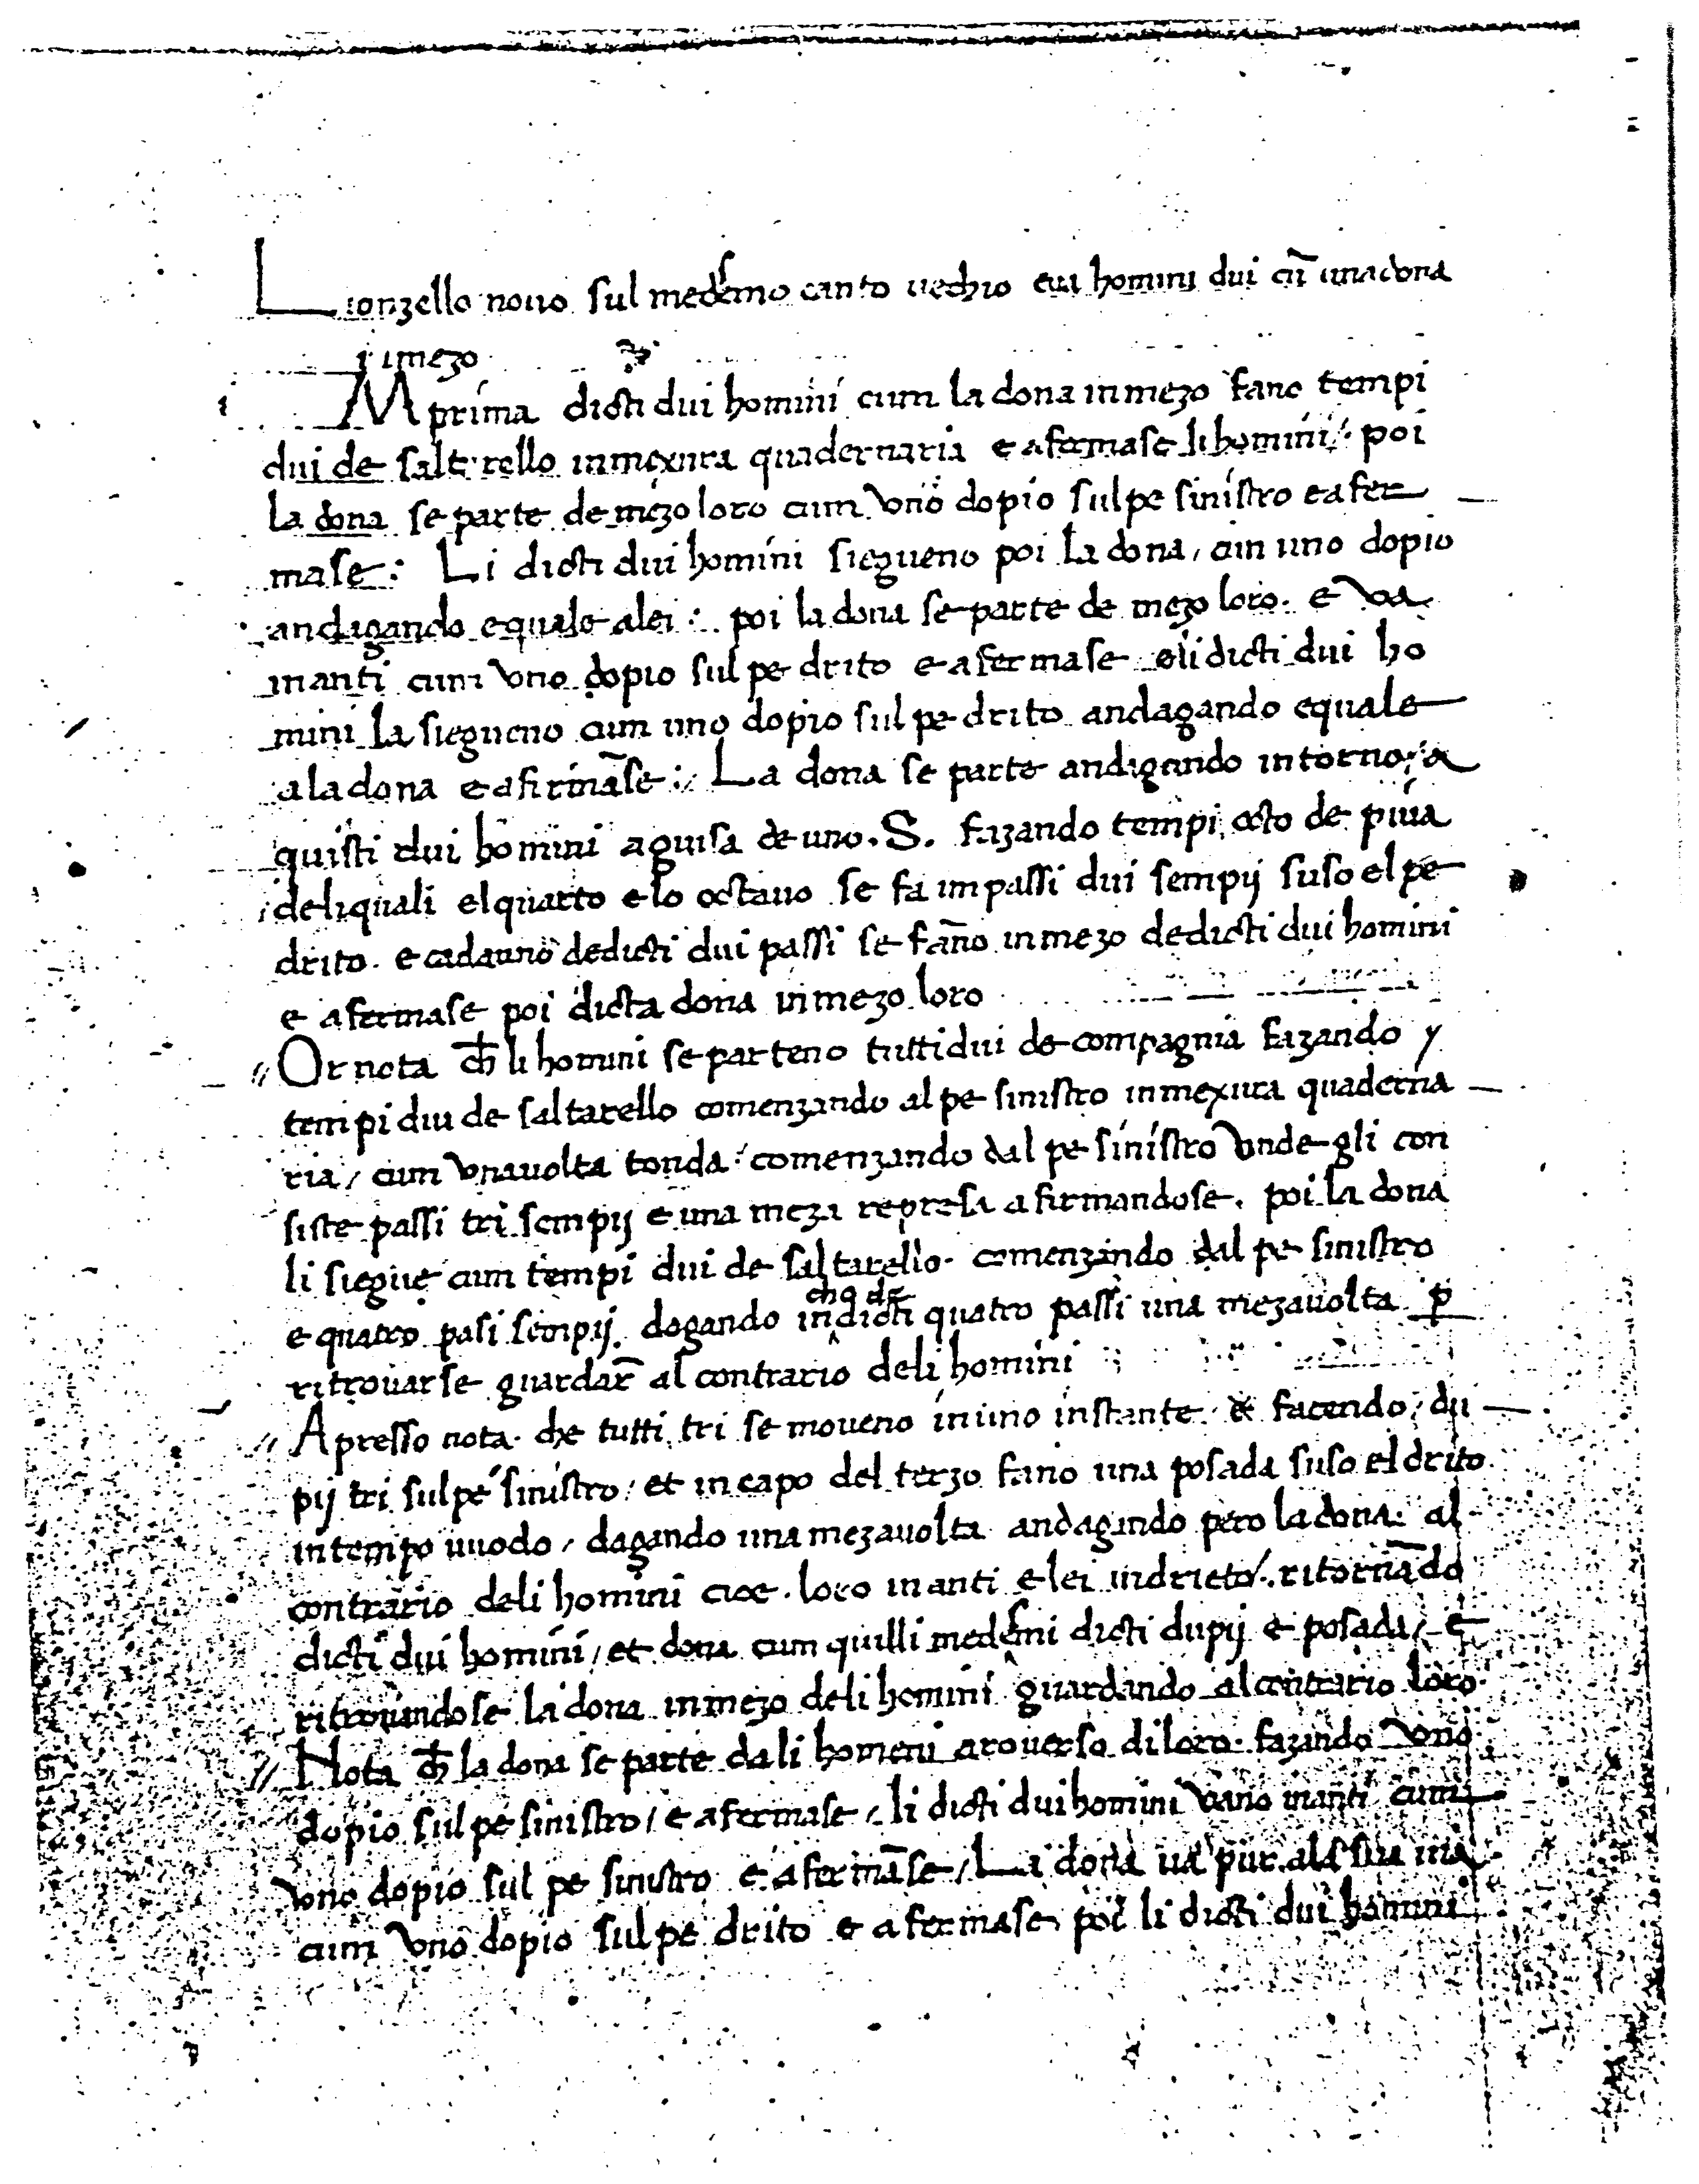 Lionzello nouo sul medesmo canto uechio e ua homini dui cū una dona
i imezo
IM prima dicti dui homini cum la dona in mezo fano tempi
dui de salterello in mexura quadernaria e afermase li homini / poi
la dona se parte de mezo loro cum vno dopio sul pe sinistro e a fer
mase : Li dicti dui homini siegueno poi la dona / cun uno dopio
andagando equale a lei : poi la dona se parte de mezo loro . e va
inanti cum vno dopio sul pe drito e afermase e li dicti dui ho
mini la siegueno cum uno dopio sul pe drito andagando equale
a la dona e afirmāse : / La dona se parte andagando intorno / a
quisti dui homini a guisa de uno . S . fazando tempi octo de piua
de li quali el quarto e lo octauo se fa im passi dui sempij suso el pe
drito . e cadauno de dicti dui passi se fāno in mezo de dicti dui homini
e afermase poi dicta dona in mezo loro
// Or nota ch̄ li homini se parteno tutti dui de compagnia fazando
tempi dui de saltarello comenzando al pe sinistro in mexura quaderna
ria / cum vna uolta tonda / comenzando dal pe sinistro vnde gli con
siste passi tri sempij e una meza represa afirmandose . poi la dona
li siegue cum tempi dui de saltarello . comenzando dal pe sinistro
e quatro pasi sempij . dagando in cho de dicti quatro passi una meza uolta p̄
ritrouarse guardar̄ al contrario de li homini
// Apresso nota . che tutti tri se moueno in uno instante . & facendo / du
pij tri sul pe sinistro / et in capo del terzo fano una posada suso el drito
in tempo uuodo / dagando una meza uolta andagando pero la dona . al
contrario de li homini cioe . loro inanti e lei indrieto / . ritornādo
dicti dui homini / et dona cum quilli medesmi dicti dupij e posada / e
ritrouandose la dona in mezo de li homini guardando al contrario loro
// Nota ch̄ la dona se parte da li homeni a rouerso di loro . fazando vno
dopio sul pe sinistro / e afermase / li dicti dui homini vano inanti cum
vno dopio sul pe sinistro e afermāse / La dona ua pur a la sua uia
cum vno dopio sul pe drito e afermase / poi li dicti dui homini